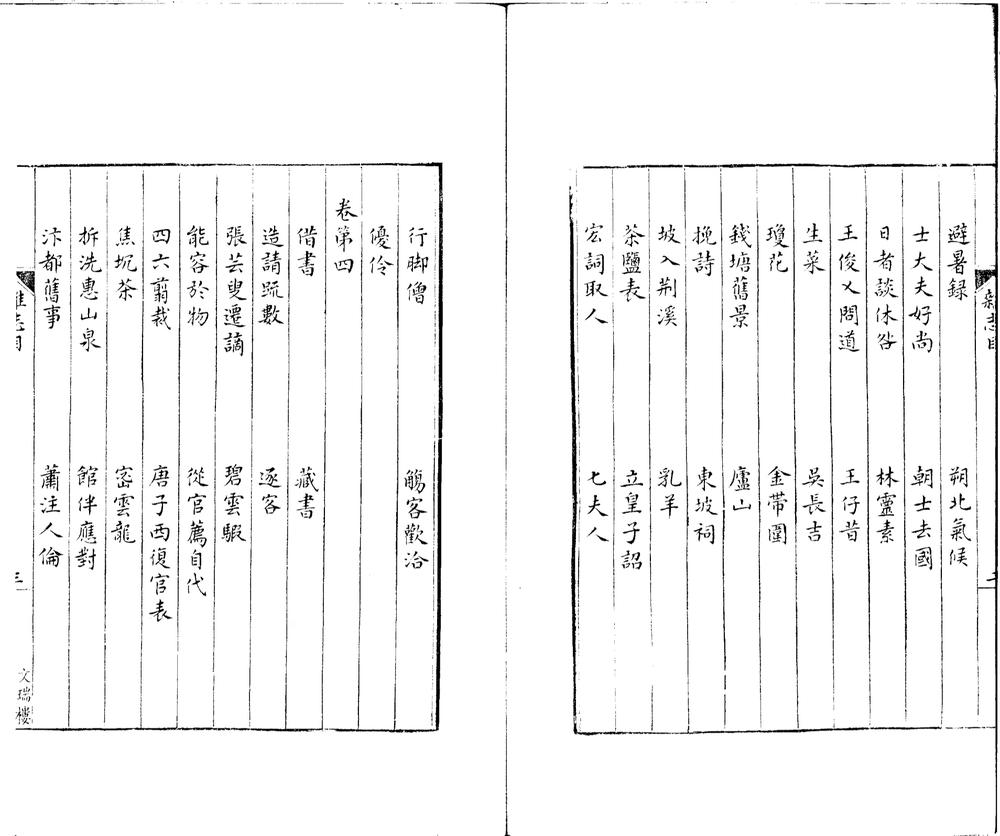 避暑録 朔北氣候
士大夫好尚 朝士去國
日者談休咎 林靈素
王俊乂問道 王仔昔
生菜 吳長吉
瓊花 金帶圍
錢塘舊景 廬山
挽詩 東坡祠
坡入荆溪 乳羊
茶鹽表 立皇子詔
宏詞取人 七夫人
行脚僧 觴客歡洽
優伶
卷第四
借書 藏書
造請踈數 逐客
張芸叟遷謫 碧雲騢
能容於物 從官薦自代
四六翦裁 唐子西復官表
焦坑茶 密雲龍
拆洗惠山泉 館伴應對
汴都舊事 蕭注人倫
雜志目
三
文瑞樓